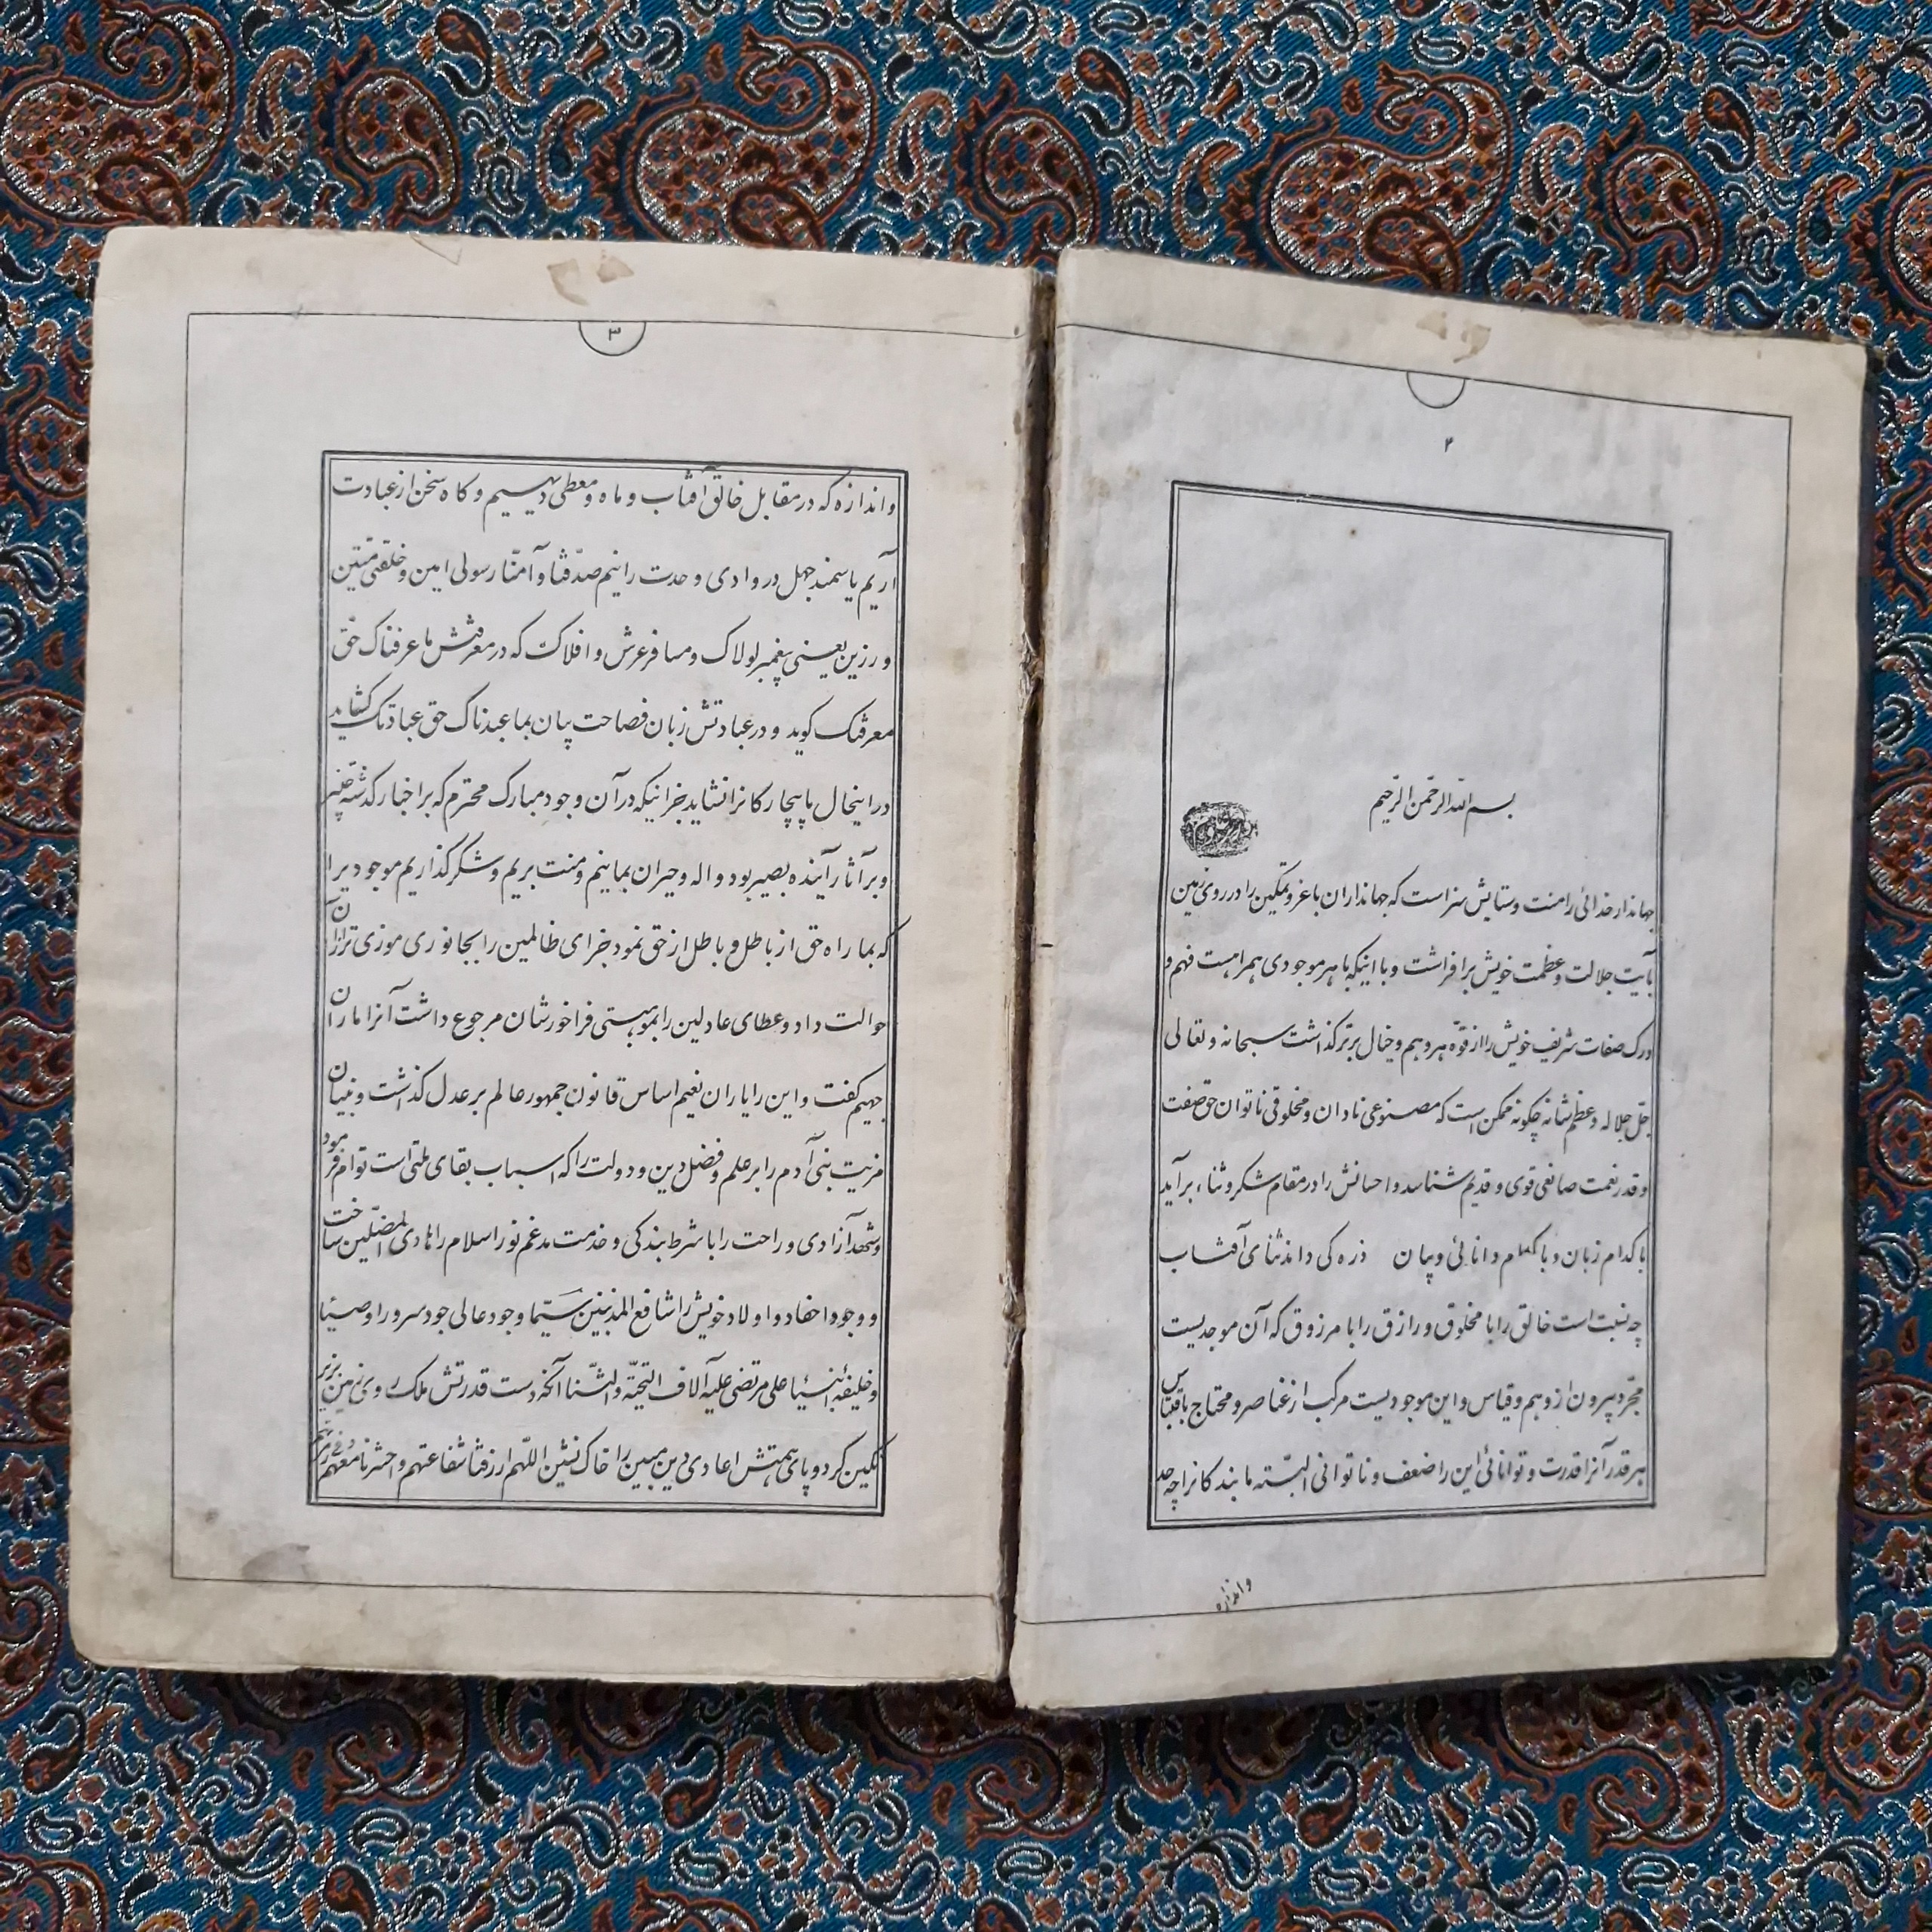 ۲
بسم الله الرحمن الرحیم
جهاندار خدائی را منت و ستایش سزاست که جهانداران با عز و تمکین را در روی زمین
بآیت جلالت و عظمت خویش برافراشت و با اینکه با هر موجودی همراهست فهم و
درک صفات شریف خویش را از قوّه هر وهم و خیال برتر گذاشت سبحانه و تعالی
جلّ جلاله و عظم شانه چگونه ممکن است که مصنوعی نادان و مخلوقی ناتوان حق صفت
و قدر نعمت صانعی قوی و قدیم شناسد و احسانش را در مقام شکر و ثناء برآید
با کدام زبان و با کدام دانائی و بیان ذره کی داند ثنای آفتاب
چه نسبت است خالق را با مخلوق و رازق را با مرزوق که آن موجدیست
مجّرد بیرون از وهم و قیاس و این موجودیست مرکب از عناصر و محتاج باقتباس
هر قدر آنرا قدرت و توانائی این را ضعف و ناتوانی البتّه ما بندکانرا چه حد
و اندازه
۳
و اندازه که در مقابل خالق آفتاب و ماه و معطی دیهیم و کاه سخن از عبادت
آریم یا سمند جهل در وادی وحدت رانیم صدّقنا و آمنّا رسولی امین و خلقتی متین
و رزین یعنی پیغمبر لولاک و مسافر عرش و افلاک که در معرفتش ما عرفناک حقّ
معرفتک کوید و در عبادتش زبان فصاحت بیان بما عبدناک حق عبادتک کشاید
در اینحال ما بیچارکانرا نشاید جز اینکه در آن وجود مبارک محترم که بر اخبار کذشته خبیر
و بر آثار آینده بصیر بود واله و حیران بمانیم و منت بریم و شکر کذاریم موجودیرا
که بما راه حق از باطل و باطل از حق نمود جزای ظالمین را بجانوری موذی تر از آن
حوالت داد و عطای عادلین را بموهبتی فراخورشان مرجوع داشت آنرا ماران
جهیم کفت و این را یاران نعیم اساس قانون جمهور عالم بر عدل کذاشت و بنیان
مزیت بنی آدم را بر علم و فضل دین و دولت را که اسباب بقای ملتی است توام فرمود
و شهد آزادی و راحت را با شرط بندکی و خدمت مدغم نور اسلام را هادی المضلّین ساخت
و وجود احفاد و اولاد خویش را شافع المذنبین سیّما وجود عالی جود سرور اوصیا
و خلیفه انبیا علی مرتضی علیه آلاف التحیّه و الثّنا آنکه دست قدرتش ملک روی زمین زیر
نکین کرد و پای همتش اعادی دین مبین را خاک نشین اللّهم ارزقنا شفاعتهم و احشرنا معهم